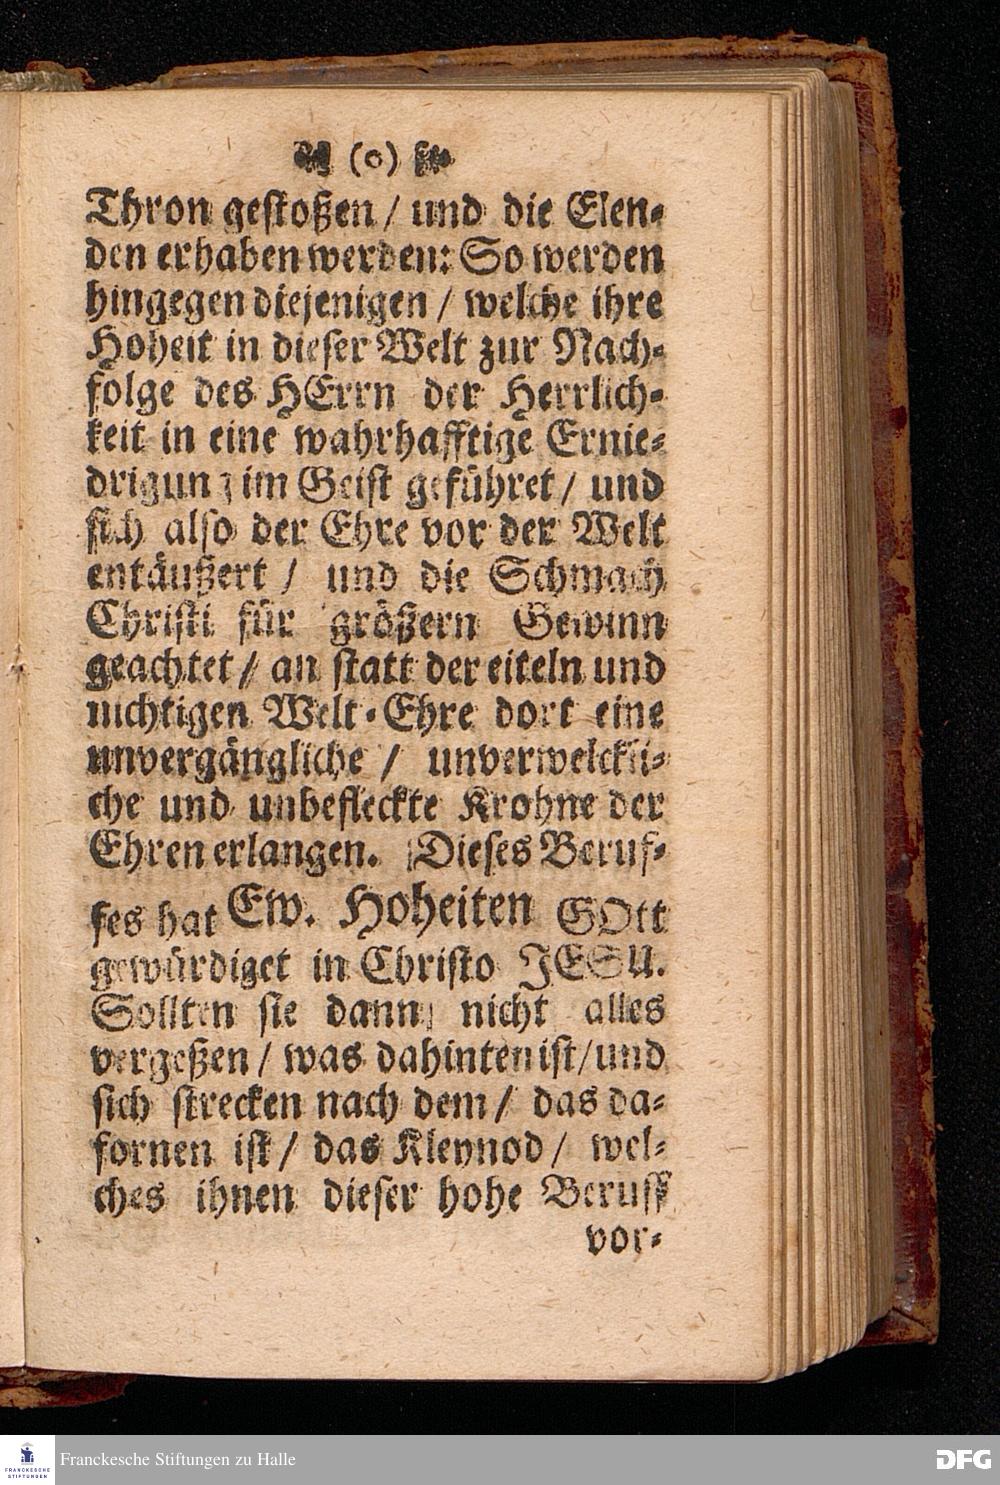 (o)
Thron gestoßen / und die Elen-
den erhaben werden: So werden
hingegen diejenigen / welche ihre
Hoheit in dieser Welt zur Nach-
folge des HErrn der Herrlich-
keit in eine wahrhafftige Ernie-
drigung im Geist geführet / und
sich also der Ehre vor der Welt
entäußert / und die Schmach
Christi für größern Gewinn
geachtet / an statt der eiteln und
nichtigen Welt-Ehre dort eine
unvergängliche / unverwelckli-
che und unbefleckte Krohne der
Ehren erlangen. Dieses Beruf-
fes hat Ew. Hoheiten GOtt
gewürdiget in Christo JESU.
Sollten sie dann nicht alles
vergeßen / was dahinten ist / und
sich strecken nach dem / das da-
fornen ist / das Kleynod / wel-
ches ihnen dieser hohe Beruff
vor-
FRANCKESCHE
STIFTUNGEN
Franckesche Stiftungen zu Halle
DFG